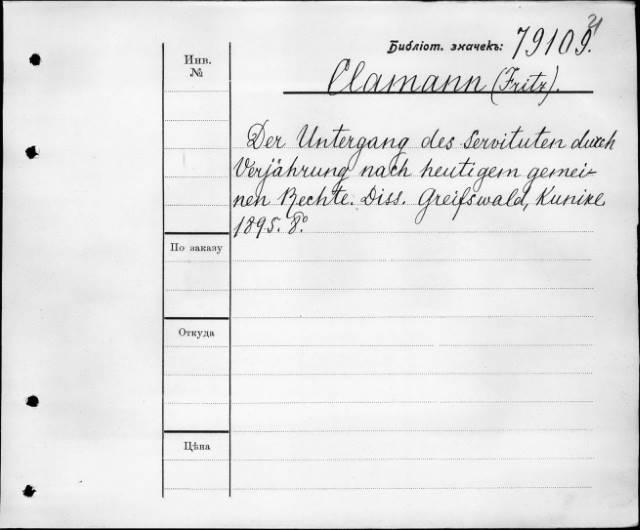 21
Библіот. значекъ: 79109.
Инв. №
Clamann (Fritz).
Der Untergang des Servituten durch
Verjährung nach heutigem gemei-
nen Rechte. Diss. Greifswald, Kunike
1895. 8.°
По заказу
Откуда
Цѣна